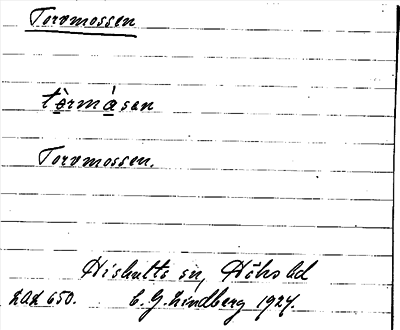 Torvmossen
tòrmásan
Torvmossen.
Hishults sn, Höks hd
LAL 650. C. G. Lindberg 1927.